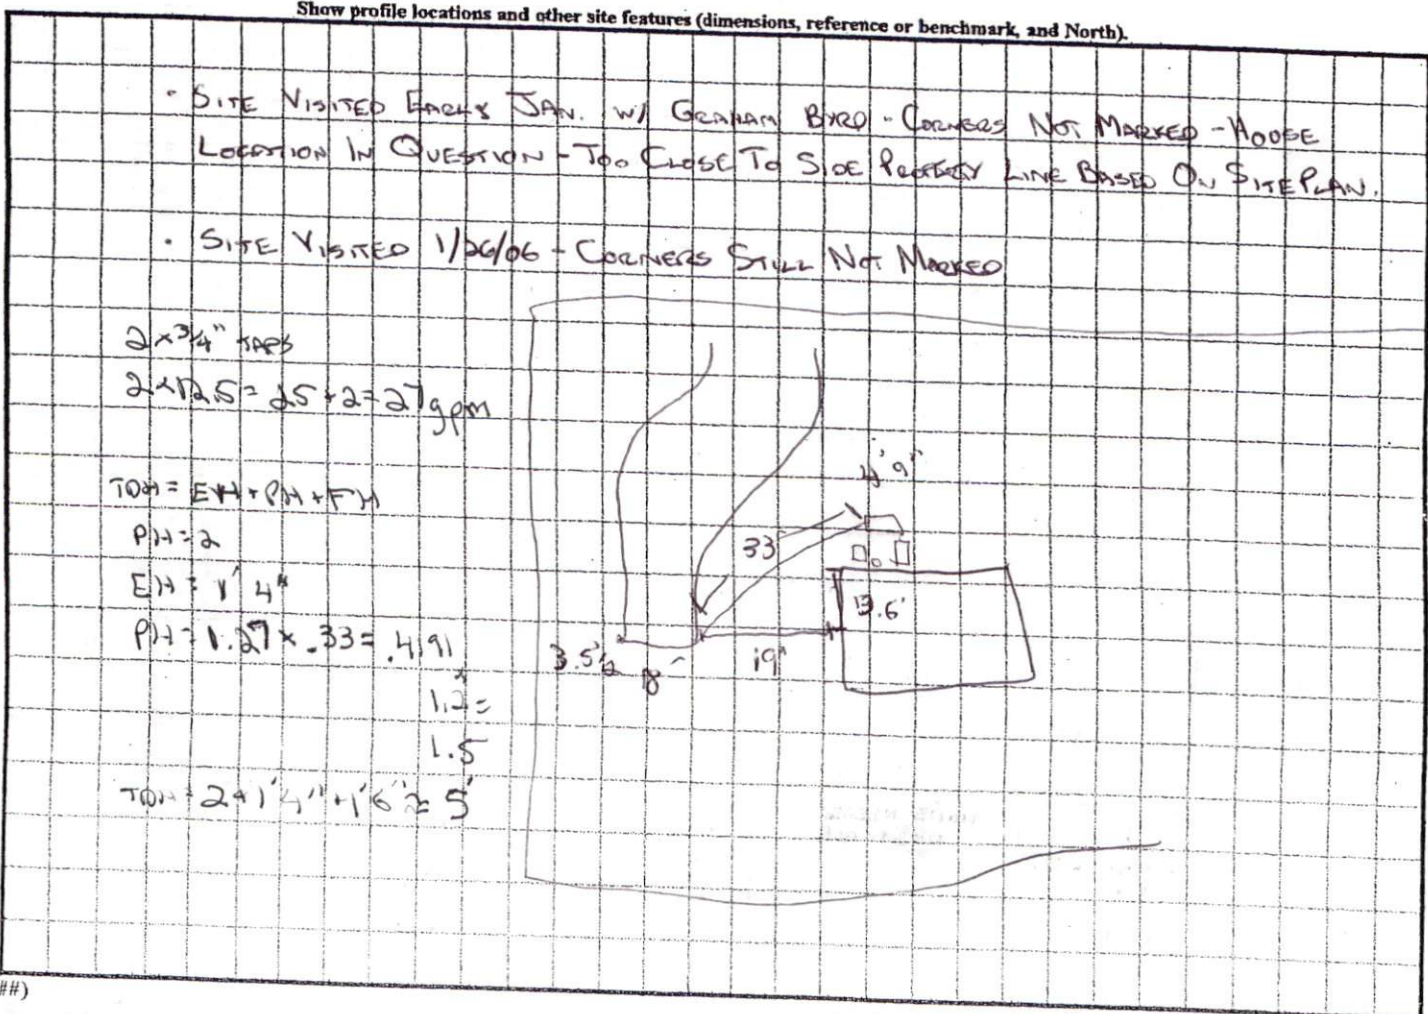 Show profile locations and other site features (dimensions, reference or benchmark, and North).
· SITE VISITED EARLY JAN. W/ GRAHAM BYRD - CORNERS NOT MARKED - HOUSE
LOCATION IN QUESTION - TOO CLOSE TO SIDE PROPERTY LINE BASED ON SITE PLAN.
· SITE VISITED 1/26/06 - CORNERS STILL NOT MARKED
2 x 3/4" TAPS
2 x 12.5 = 25 + 2 = 27 gpm
TDH = EH + PH + FH
PH = 2
EH = 1' 4"
PH = 1.27 x .33 = .4191
x
1.2 =
1.5
TDH = 2 + 1' 4" + 1' 6" ≈ 5'
4' 9"
33'
13.6'
3.5'
8'
19'
##)